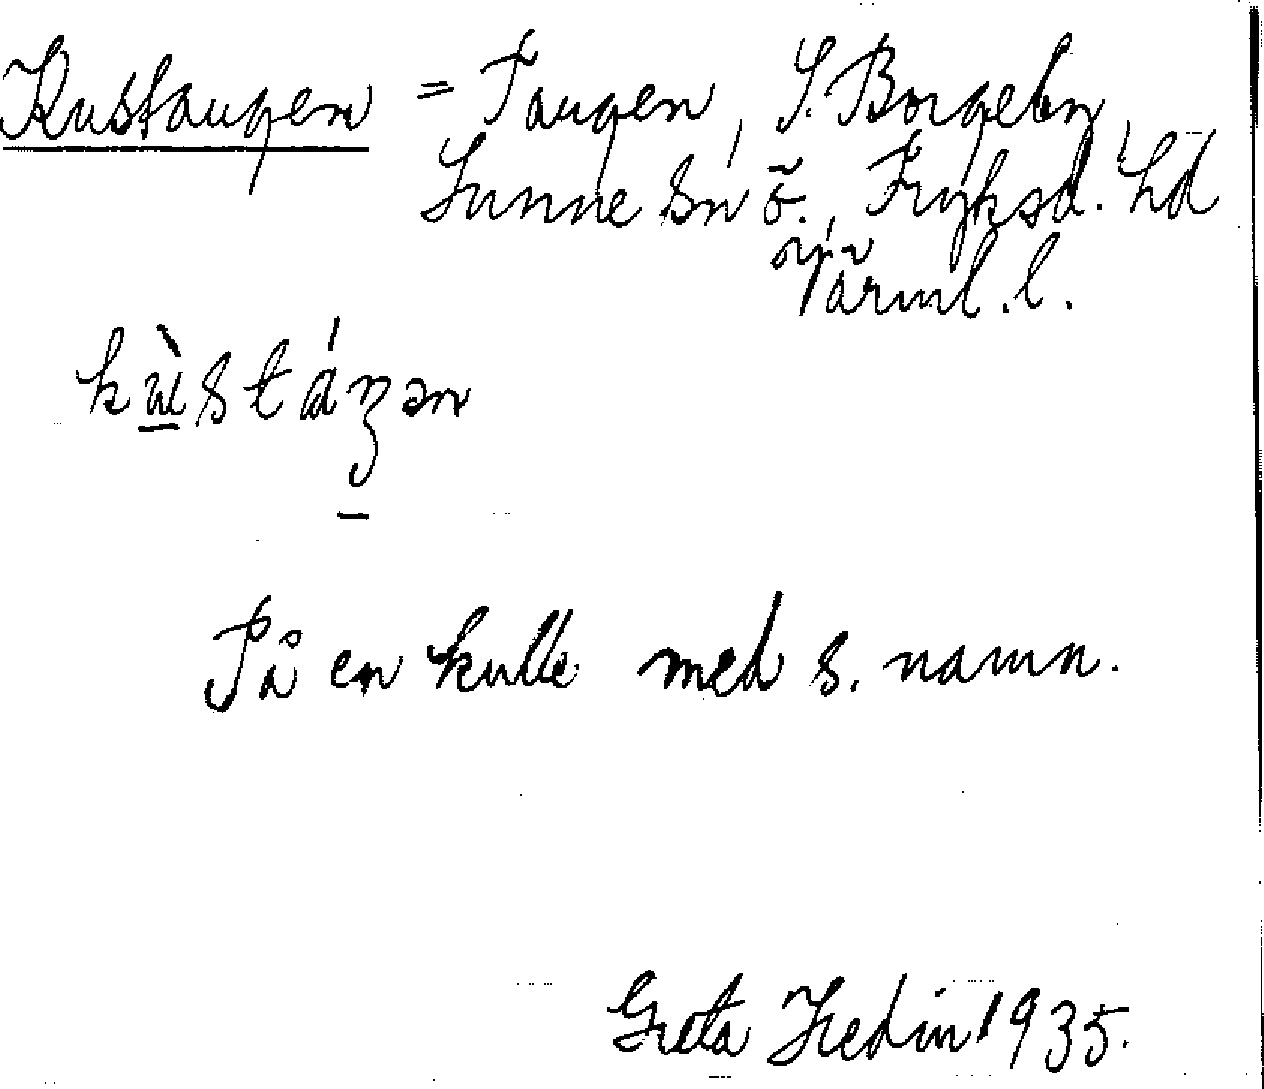 Kustaugen = Taugen, S. Borgeby,
Sunne sn ö., Fryksd. hd
Värml. l.
På en kulle med s. namn.
Greta Hedin 1935.